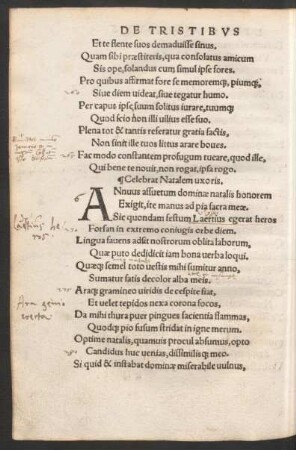 DE TRISTIBVS
Et te flente suos demaduisse sinus.
Quam sibi præstiteris, qua consolatus amicum
Sis ope, solandus cum simul ipse fores.
Pro quibus affirmat fore se memoremq̃, piumq̃,
Siue diem uideat, siue tegatur humo.
Per caput ipse, suum solitus iurare, tuumq̃
Quod scio non illi uilius esse suo.
Plena tot & tantis referatur gratia factis,
Non sinit ille tuos litus arare boues.
Fac modo constantem profugum tueare, quod ille,
Qui bene te nouit, non rogat, ipsa rogo.
¶Celebrat Natalem uxoris.
ANnuus assuetum dominæ natalis honorem
Exigit, ite manus ad pia sacra meæ.
Sic quondam festum Laertius egerat heros
Laertius he
ros.
Forsan in extremo coniugis orbe diem.
Lingua fauens adsit nostrorum oblita laborum,
Quæ puto dedidicit iam bona uerba loqui.
Quæq̃ semel toto uestis mihi sumitur anno,
Sumatur fatis decolor alba meis.
Araq̃ gramineo uiridis de cespite fiat,
Ara grami
Et uelet tepidos nexa corona focos,
Da mihi thura puer pingues facientia flammas,
Quodq̃ pio fusum stridat in igne merum.
Optime natalis, quamuis procul absumus, opto
Candidus huc uenias, dissimilisq̃ meo.
Si quid & instabat dominæ miserabile uulnus,